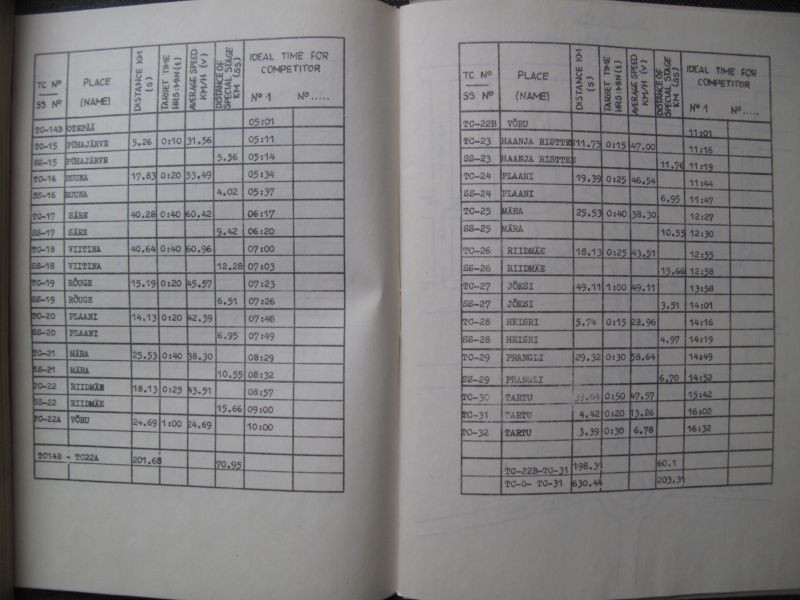 TC Nº PLACE DISTANCE KM TARGET TIME AVERAGE SPEED DISTANCE OF IDEAL TIME FOR
SS Nº (NAME) (S) HRS:MIN(t) KM/H (V) SPECIAL STAGE KM (SS) COMPETITOR
Nº 1 Nº.....
TC-14B OTEPÄÄ 05:01
TC-15 PÜHAJÄRVE 5.26 0:10 31.56 05:11
SS-15 PÜHAJÄRVE 5.56 05:14
TC-16 KUUNA 17.83 0:20 53.49 05:34
SS-16 KUUNA 4.02 05:37
TC-17 SÄRE 40.28 0:40 60.42 06:17
SS-17 SÄRE 9.42 06:20
TC-18 VIITINA 40.64 0:40 60.96 07:00
SS-18 VIITINA 12.28 07:03
TC-19 RÕUGE 15.19 0:20 45.57 07:23
SS-19 RÕUGE 6.51 07:26
TC-20 PLAANI 14.13 0:20 42.39 07:46
SS-20 PLAANI 6.95 07:49
TC-21 MÄRA 25.53 0:40 38.30 08:29
SS-21 MÄRA 10.55 08:32
TC-22 RIIDMÄE 18.13 0:25 43.51 08:57
SS-22 RIIDMÄE 15.66 09:00
TC-22A VÕRU 24.69 1:00 24.69 10:00
TC14B - TC22A 201.68 70.95
TC Nº PLACE DISTANCE KM TARGET TIME AVERAGE SPEED DISTANCE OF IDEAL TIME FOR
SS Nº (NAME) (S) HRS:MIN(t) KM/H (V) SPECIAL STAGE KM (SS) COMPETITOR
Nº 1 Nº.....
TC-22B VÕRU 11:01
TC-23 HAANJA RISTTEE 11.75 0:15 47.00 11:16
SS-23 HAANJA RISTTEE 11.76 11:19
TC-24 PLAANI 19.39 0:25 46.54 11:44
SS-24 PLAANI 6.95 11:47
TC-25 MÄRA 25.53 0:40 38.30 12:27
SS-25 MÄRA 10.55 12:30
TC-26 RIIDMÄE 18.13 0:25 43.51 12:55
SS-26 RIIDMÄE 15.66 12:58
TC-27 JÕKSI 49.11 1:00 49.11 13:58
SS-27 JÕKSI 3.51 14:01
TC-28 HEISRI 5.74 0:15 22.96 14:16
SS-28 HEISRI 4.97 14:19
TC-29 PRANGLI 29.32 0:30 58.64 14:49
SS-29 PRANGLI 6.70 14:52
TC-30 TARTU 39.64 0:50 47.57 15:42
TC-31 TARTU 4.42 0:20 13.26 16:02
TC-32 TARTU 3.39 0:30 6.78 16:32
TC-22B-TC-31 198.31 60.1
TC-0- TC-31 630.44 203.31